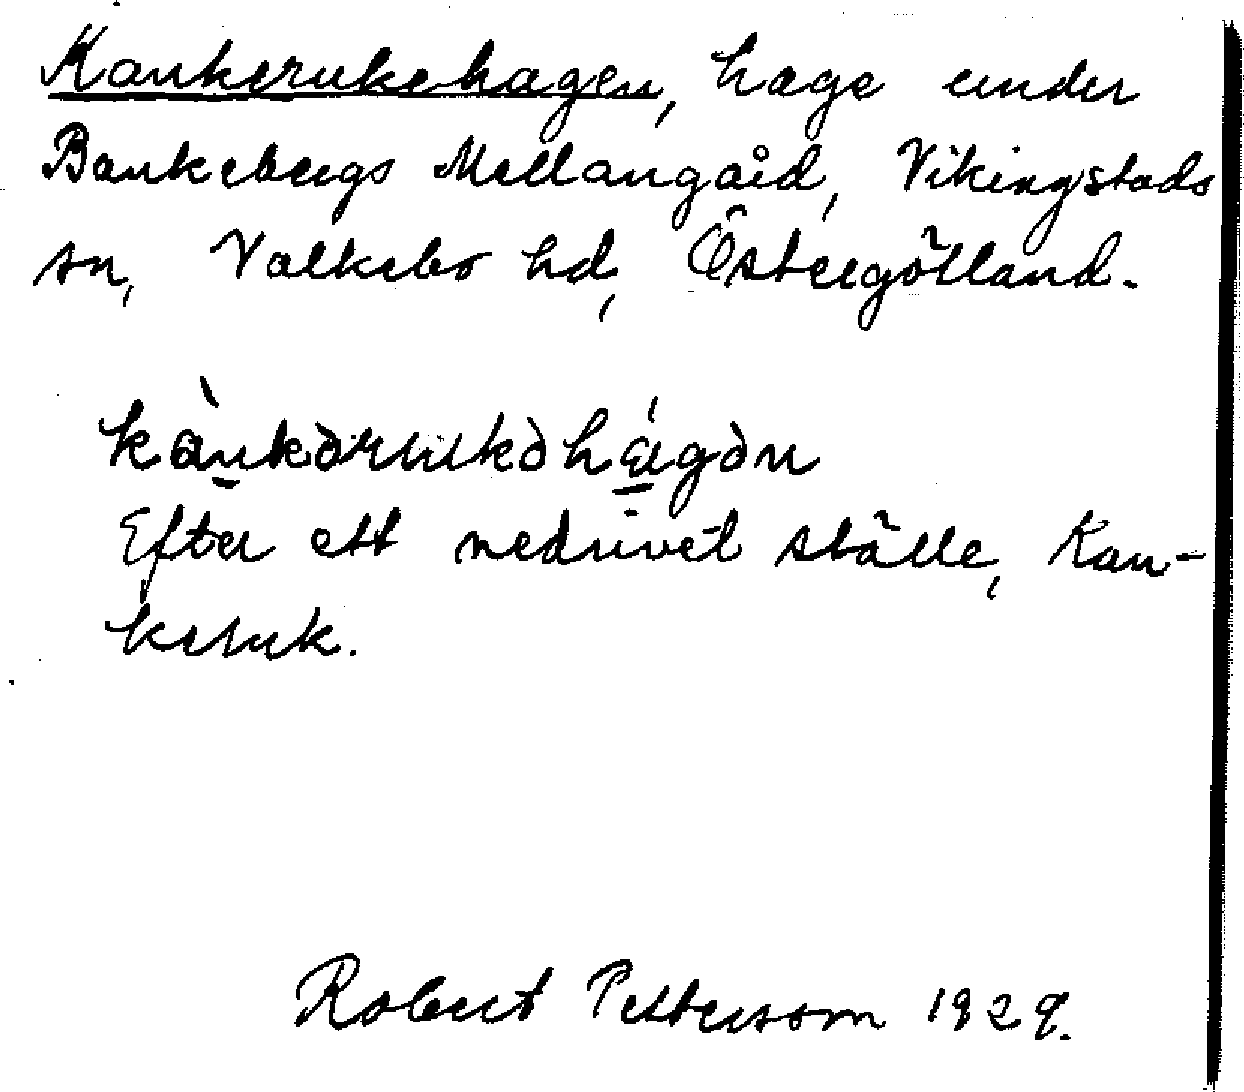 Kankerukehagen, hage under
Bankebergs Mellangård, Vikingstads
sn, Valkebo hd, Östergötland.
kànkərukəhágən
Efter ett nedrivet ställe, Kan-
keruk.
Robert Pettersson 1929.